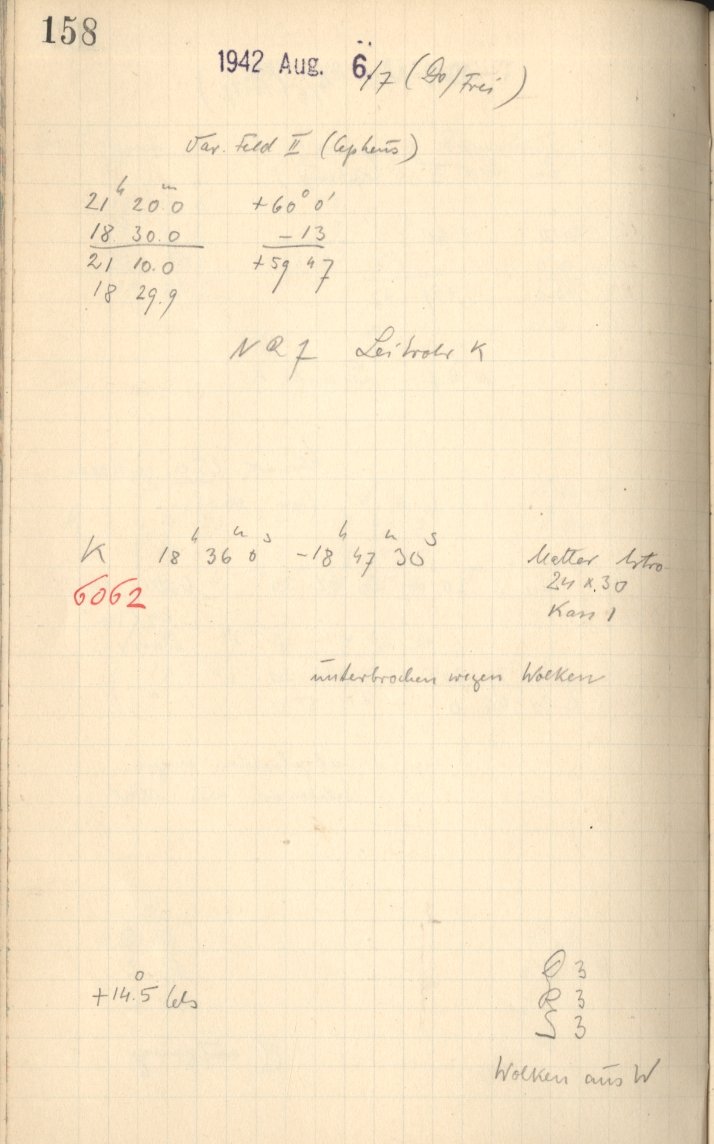 158
1942 Aug. 6./7 (Do/Frei)
Var. Feld II (Cepheus)
21ʰ 20ᵐ.0 +60° 0'
18 30.0 - 13
21 10.0 +59 47
18 29.9
Leitrohr K
K 18ʰ 36ᵐ 0ˢ -18ʰ 47ᵐ 30ˢ Astro
6062 24 x 30
Kass 1
unterbrochen wegen Wolken
+14°.5 Cels
3
R 3
S 3
Wolken aus W